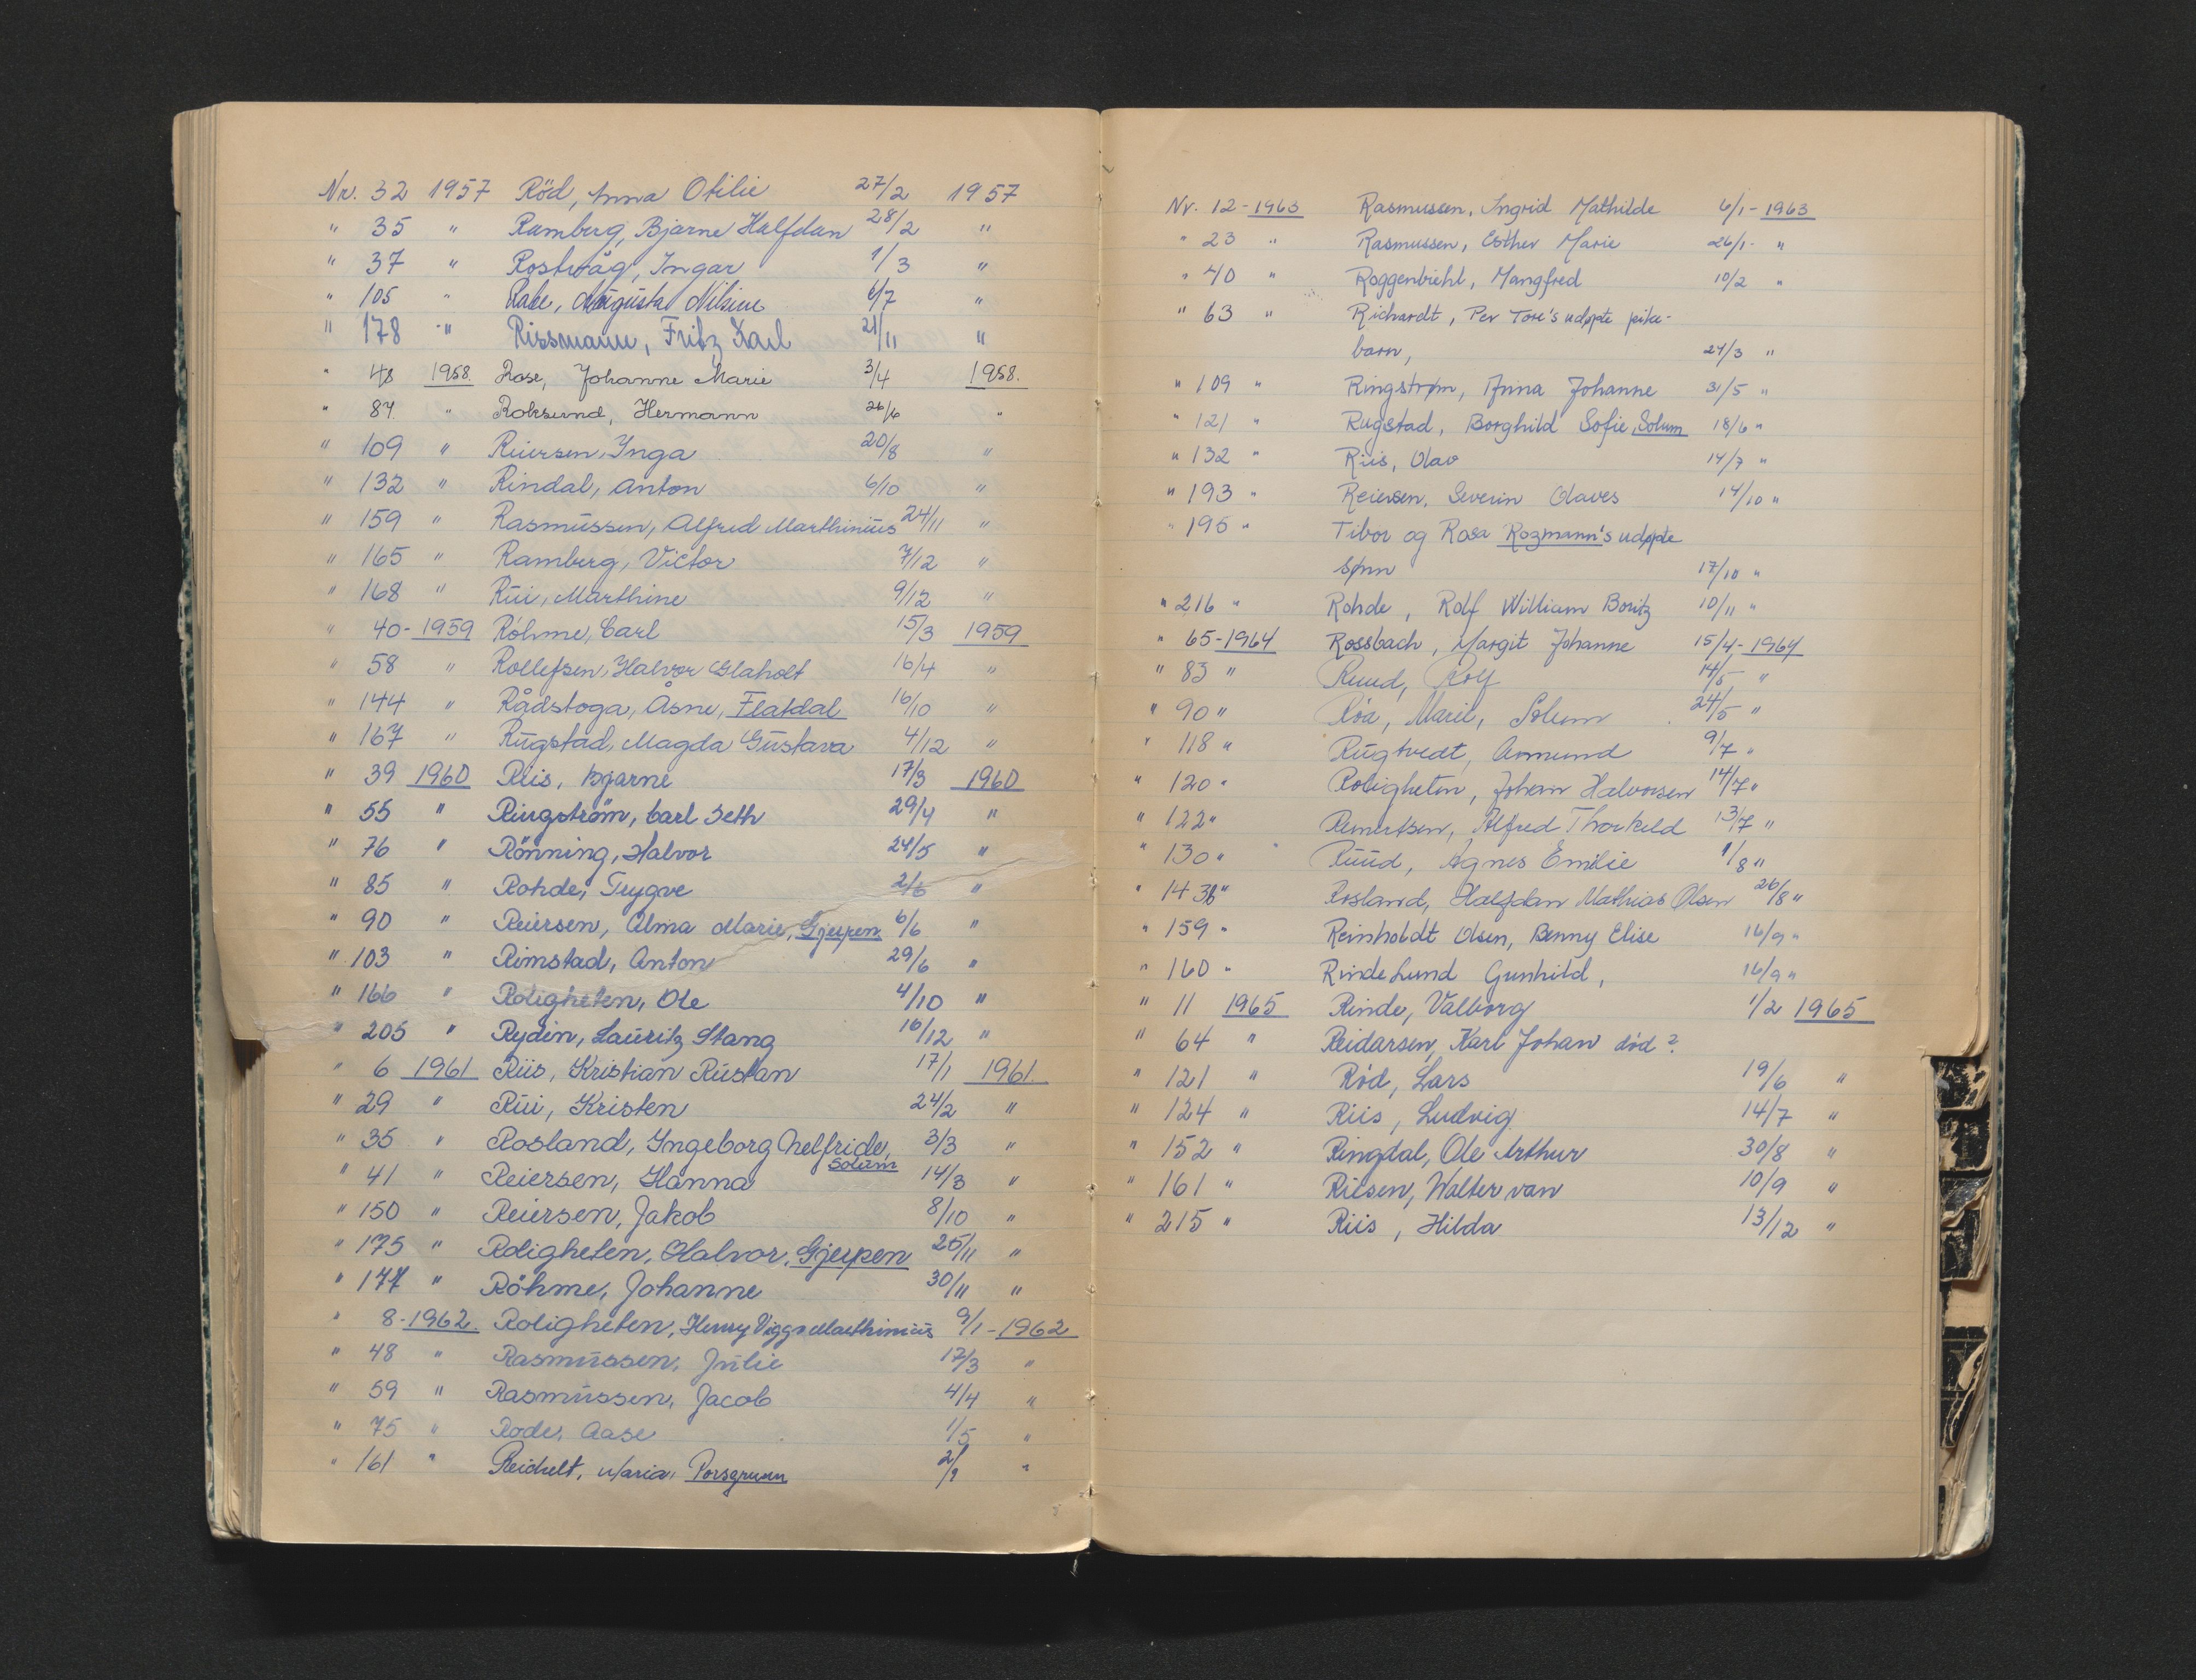 Nr. 32 1957 Röd, Anna Otilie 27/2 1957
" 35 " Ramberg, Bjarne Halfdan 28/2 "
" 37 " Rostvåg, Ingar 1/3 "
" 105 " Rabe, Augusta Nilsine 6/7 "
" 178 " Rissmann, Fritz Karl 21/11 "
" 48 1958. Rose, Johanne Marie 3/4 1958.
" 87 " Roksund, Hermann 26/6 "
" 109 " Reiersen, Inga 20/8 "
" 132 " Rindal, Anton 6/10 "
" 159 " Rasmussen, Alfred Marthinius 24/11 "
" 165 " Ramberg, Victor 7/12 "
" 168 " Rui, Marthine 9/12 "
" 40-1959 Röhme, Carl 15/3 1959
" 58 " Rollefsen, Halvor Glaholt 16/4 "
" 144 " Rådstoga, Åsne, Flatdal 16/10 "
" 167 " Rugstad, Magda Gustava 4/12 "
" 39 1960 Riis, Bjarne 17/3 1960
" 55 " Ringström, Carl Seth 29/4 "
" 76 " Rönning, Halvor 24/5 "
" 85 " Rohde, Trygve 2/6 "
" 90 " Reiersen, Alma Marie, Gjerpen 6/6 "
" 103 " Rimstad, Anton 29/6 "
" 166 " Roligheten, Ole 4/10 "
" 205 " Rydin, Lauritz Stang 16/12 "
" 6 1961 Riis, Kristian Rustan 17/1 1961.
" 29 " Rui, Kristen 24/2 "
" 35 " Rosland, Ingeborg Nelfride, 3/3 "
Solum
" 41 " Reiersen, Hanna 14/3 "
" 150 " Reiersen, Jakob 8/10 "
" 175 " Roligheten, Halvor, Gjerpen 25/11 "
" 177 " Röhme, Johanne 30/11 "
" 8-1962. Roligheten, Henry Viggo Marthinius 9/1-1962
" 48 " Rasmussen, Julie 17/3 "
" 59 " Rasmussen, Jacob 4/4 "
" 75 " Rode, Aase 1/5 "
" 161 " Reichelt, Maria, Porsgrunn 2/9 "
Nr. 12-1963 Rasmussen, Ingrid Mathilde 6/1-1963
" 23 " Rasmussen, Esther Marie 26/1- "
" 40 " Roggenbiehl, Mangfred 10/2 "
" 63 " Richardt, Per Tore's udøpte pike-
barn, 27/3 "
" 109 " Ringstrøm, Anna Johanne 31/5 "
" 121 " Rugstad, Borghild Sofie, Solum 18/6 "
" 132 " Riis, Olav 14/7 "
" 193 " Reiersen, Severin Olaves 14/10 "
" 195 " Tibor og Rosa Rozmann's udøpte
sønn 17/10 "
" 216 " Rohde, Rolf William Boritz 10/11 "
" 65-1964 Rossbach, Margit Johanne 15/4-1964
" 83 " Ruud, Rolf 14/5 "
" 90 " Róa, Marie, Solum 24/5 "
" 118 " Rugtvedt, Anmund 9/7 "
" 120 " Roligheten, Johan Halvorsen 14/7 "
" 122 " Reinertsen, Alfred Thorkeld 13/7 "
" 130 " Ruud, Agnes Emilie 1/8 "
" 143b " Rosland, Halfdan Mathias Olsen 26/8 "
" 159 " Reinholdt Olsen, Benny Elise 16/9 "
" 160 " Rinde Lund Gunhild, 16/9 "
" 11 1965 Rinde, Valborg 1/2 1965
" 64 " Reidarsen, Karl Johan död?
" 121 " Röd, Lars 19/6 "
" 124 " Riis, Ludvig 14/7 "
" 152 " Ringdal, Ole Arthur 30/8 "
" 161 " Riesen, Walter van 10/9 "
" 215 " Riis, Hilda 13/12 "